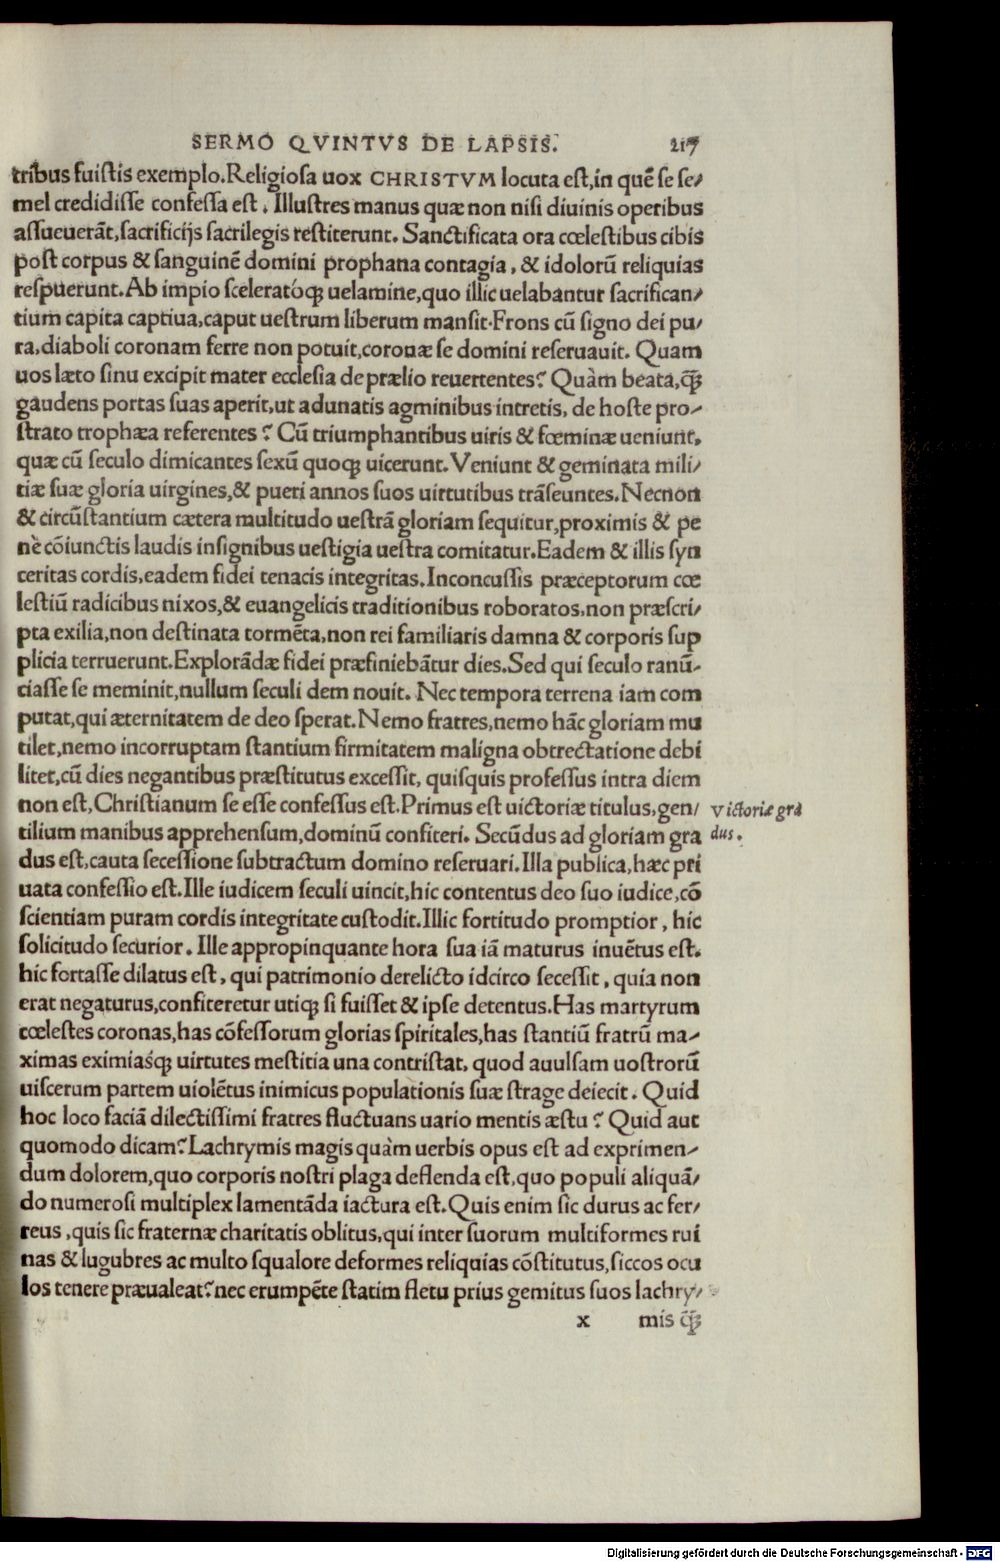 SERMO QVINTVS DE LAPSIS. 217
tribus fuiſtis exemplo.Religioſa uox CHRISTVM locuta eſt,in quē ſe ſe⸗
mel credidiſſe confeſſa eſt. Illuſtres manus quæ non niſi diuinis operibus
aſſueuerāt,ſacrificijs ſacrilegis reſtiterunt. Sanctificata ora cœleſtibus cibis
poſt corpus & ſanguinē domini prophana contagia, & idolorū reliquias
reſpuerunt.Ab impio ſceleratóqꝫ uelamine,quo illic uelabantur ſacrifican⸗
tium capita captiua,caput ueſtrum liberum manſit.Frons cū ſigno dei pu⸗
ra,diaboli coronam ferre non potuit,coronæ ſe domini reſeruauit. Quam
uos læto ſinu excipit mater eccleſia de prælio reuertentes? Quàm beata,q̄ꝫ
gaudens portas ſuas aperit,ut adunatis agminibus intretis, de hoſte pro⸗
ſtrato trophæa referentes? Cū triumphantibus uiris & fœminæ ueniunt,
quæ cū ſeculo dimicantes ſexū quoqꝫ uicerunt.Veniunt & geminata mili⸗
tiæ ſuæ gloria uirgines,& pueri annos ſuos uirtutibus trāſeuntes.Necnon
& circūſtantium cætera multitudo ueſtrā gloriam ſequitur,proximis & pe
nè cōiunctis laudis inſignibus ueſtigia ueſtra comitatur.Eadem & illis ſyn
ceritas cordis,eadem fidei tenacis integritas.Inconcuſſis præceptorum cœ
leſtiū radicibus nixos,& euangelicis traditionibus roboratos,non præſcri⸗
pta exilia,non deſtinata tormēta,non rei familiaris damna & corporis ſup
plicia terruerunt.Explorādæ fidei præfiniebātur dies.Sed qui ſeculo ranū⸗
ciaſſe ſe meminit,nullum ſeculi dem nouit. Nec tempora terrena iam com
putat,qui æternitatem de deo ſperat.Nemo fratres,nemo hāc gloriam mu
tilet,nemo incorruptam ſtantium firmitatem maligna obtrectatione debi
litet,cū dies negantibus præſtitutus exceſſit, quiſquis profeſſus intra diem
non eſt,Chriſtianum ſe eſſe confeſſus eſt.Primus eſt uictoriæ titulus,gen⸗
tilium manibus apprehenſum,dominū confiteri. Secūdus ad gloriam gra
dus eſt,cauta ſeceſſione ſubtractum domino reſeruari.Illa publica,hæc pri
uata confeſſio eſt.Ille iudicem ſeculi uincit,hic contentus deo ſuo iudice,cō
ſcientiam puram cordis integritate cuſtodit.Illic fortitudo promptior, hic
ſolicitudo ſecurior. Ille appropinquante hora ſua iā maturus inuētus eſt.
hic fortaſſe dilatus eſt, qui patrimonio derelicto idcirco ſeceſſit, quia non
erat negaturus,confiteretur utiqꝫ ſi fuiſſet & ipſe detentus.Has martyrum
cœleſtes coronas,has cōfeſſorum glorias ſpiritales,has ſtantiū fratrū ma⸗
ximas eximiaśqꝫ uirtutes meſtitia una contriſtat, quod auulſam uoſtrorū
uiſcerum partem uiolētus inimicus populationis ſuæ ſtrage deiecit. Quid
hoc loco faciā dilectiſſimi fratres fluctuans uario mentis æſtu? Quid aut
quomodo dicam?Lachrymis magis quàm uerbis opus eſt ad exprimen⸗
dum dolorem,quo corporis noſtri plaga deflenda eſt,quo populi aliquā⸗
do numeroſi multiplex lamentāda iactura eſt.Quis enim ſic durus ac fer⸗
reus,quis ſic fraternæ charitatis oblitus,qui inter ſuorum multiformes rui
nas & lugubres ac multo ſqualore deformes reliquias cōſtitutus,ſiccos ocu
los tenere præualeat?nec erumpēte ſtatim fletu prius gemitus ſuos lachry⸗
x mis q̄ꝫ
Victoriæ gra
dus.
Digitalisierung gefördert durch die Deutsche Forschungsgemeinschaft - DFG